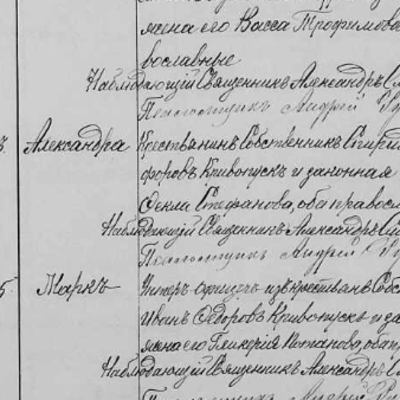 жена его Васса Трофимова
вославные
Наблюдающій Священникъ Александръ
Псаломщикъ Андрей
Александра Крестьянинъ Собственникъ Спирид
форовъ Кривопускъ и законная
Фекла Стефанова, оба правосл
Наблюдающій Священникъ Александръ
Псаломщикъ Андрей
5. Маркъ Унтеръ-офицеръ изъ крестьянъ Соб
Иванъ Ѳедоровъ Кривопускъ и за
жена его Гликерія Потапова, оба п
Наблюдающій Священникъ Александръ
Псаломщикъ Андрей